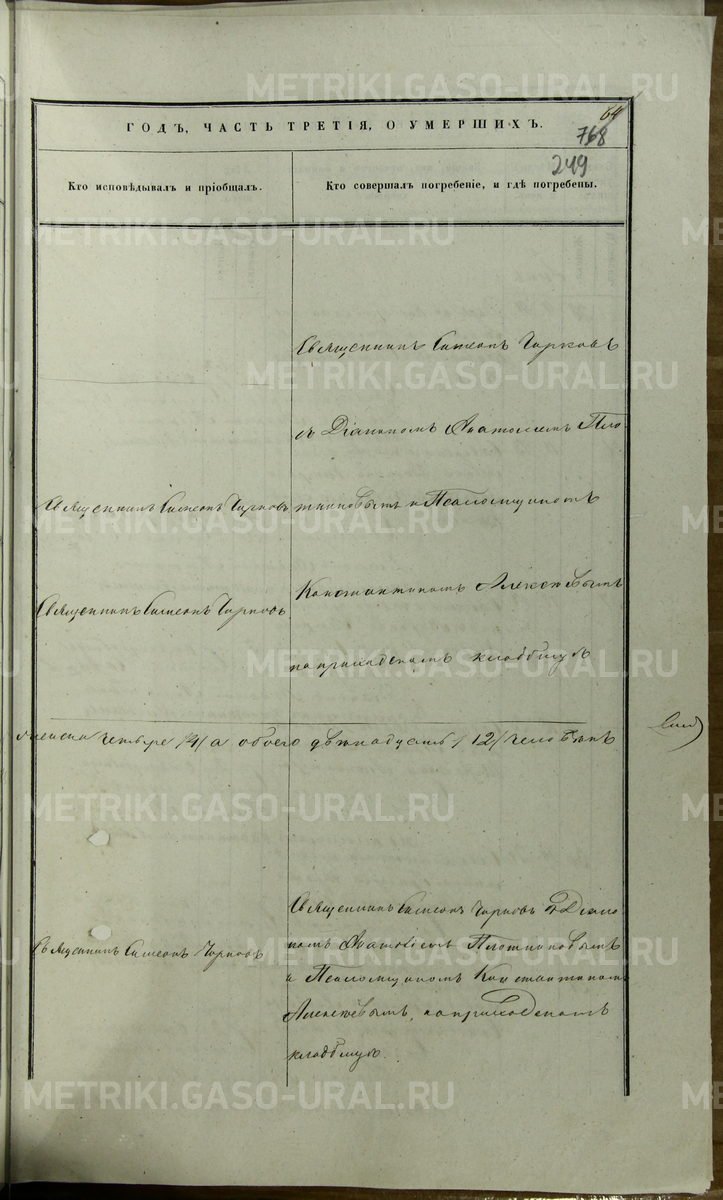 64
768
249
ГОДЪ, ЧАСТЬ ТРЕТІЯ, О УМЕРШИХЪ.
Кто исповѣдывалъ и пріобщалъ.
Кто совершалъ погребеніе, и гдѣ погребены.
Священникъ Симеонъ Чирковъ
съ Діакономъ Анатоліемъ Пло-
Священникъ Симеонъ Чирковъ
тниковымъ и Псаломщикомъ
Священникъ Симеонъ Чирковъ
Константиномъ Алексѣевымъ
на приходскомъ кладбищѣ
четыре /4/ а обоего двѣнадцать /12/ человѣкъ
Священникъ Симеонъ Чирковъ съ Діако-
номъ Анатоліемъ Плотниковымъ
Священникъ Симеонъ Чирковъ
и Псаломщикомъ Константиномъ
Алексѣевымъ, на приходскомъ
кладбищѣ.
METRIKI.GASO-URAL.RU